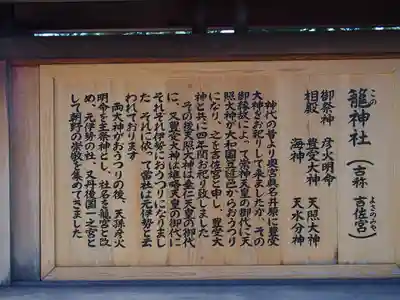 籠神社（古称 吉佐宮）
この
よさのみや
御祭神 彦火明命
相殿 豊受大神 天照大神
海神 天水分神
神代の昔より奥宮眞名井原に豊受
大神をお祀りして来ましたが、その
御縁故によって崇神天皇の御代に天
照大神が大和国笠縫邑からおうつり
になり、之を吉佐宮と申し、豊受大
神と共に四年間お祀り致しました
その後天照大神は垂仁天皇の御代
に、又豊受大神は雄略天皇の御代に
それぞれ伊勢におうつりになりまし
た それに依って當社は元伊勢と云
われております
両大神がおうつりの後、天孫彦火
明命を主祭神とし、社名を籠宮と改
め、元伊勢の社、又丹後國一之宮と
して朝野の崇敬を集めてきました